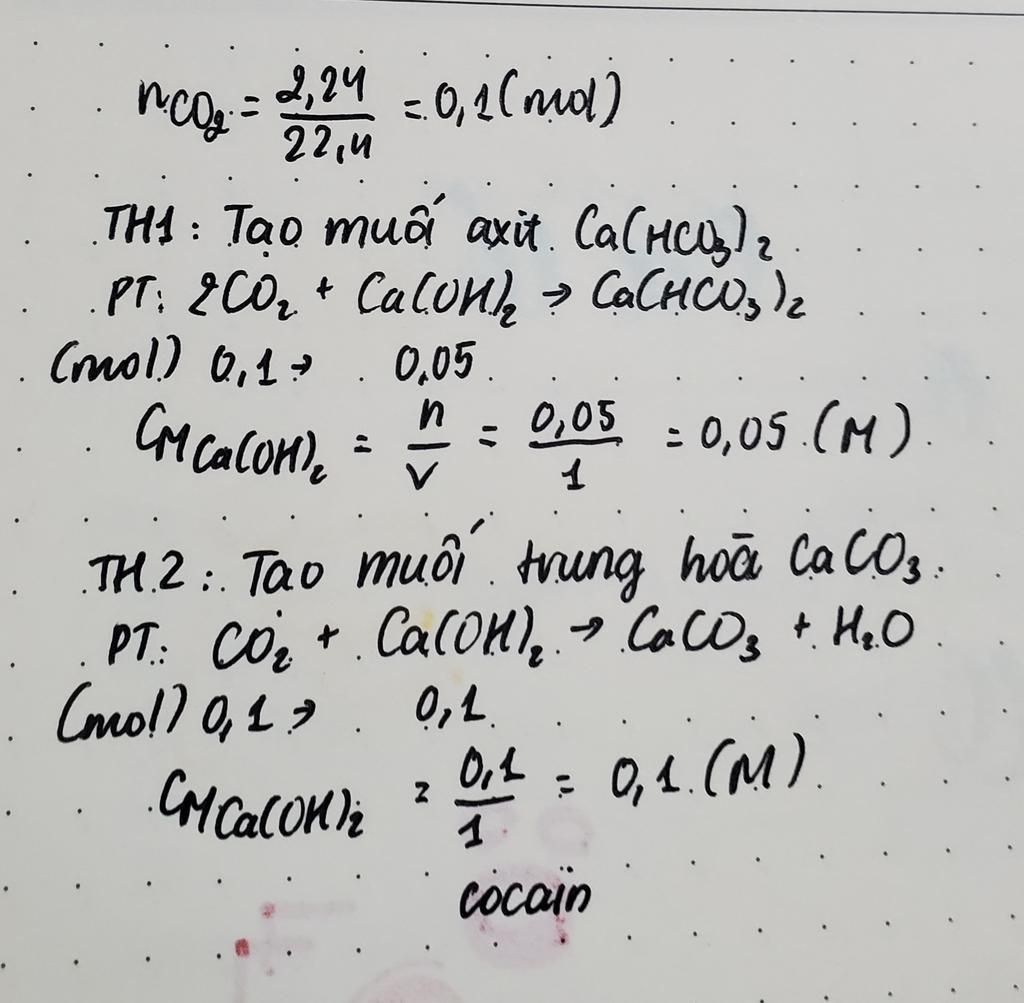 nCO₂ = 2,24/22,4 = 0,1 (mol)
TH1 : Tạo muối axit Ca(HCO₃)₂
PT: 2CO₂ + Ca(OH)₂ → Ca(HCO₃)₂
(mol) 0,1 → 0,05
CM Ca(OH)₂ = n/V = 0,05/1 = 0,05 (M)
TH2 : Tạo muối trung hoà CaCO₃
PT: CO₂ + Ca(OH)₂ → CaCO₃ + H₂O
(mol) 0,1 → 0,1
CM Ca(OH)₂ = 0,1/1 = 0,1 (M)
cocain